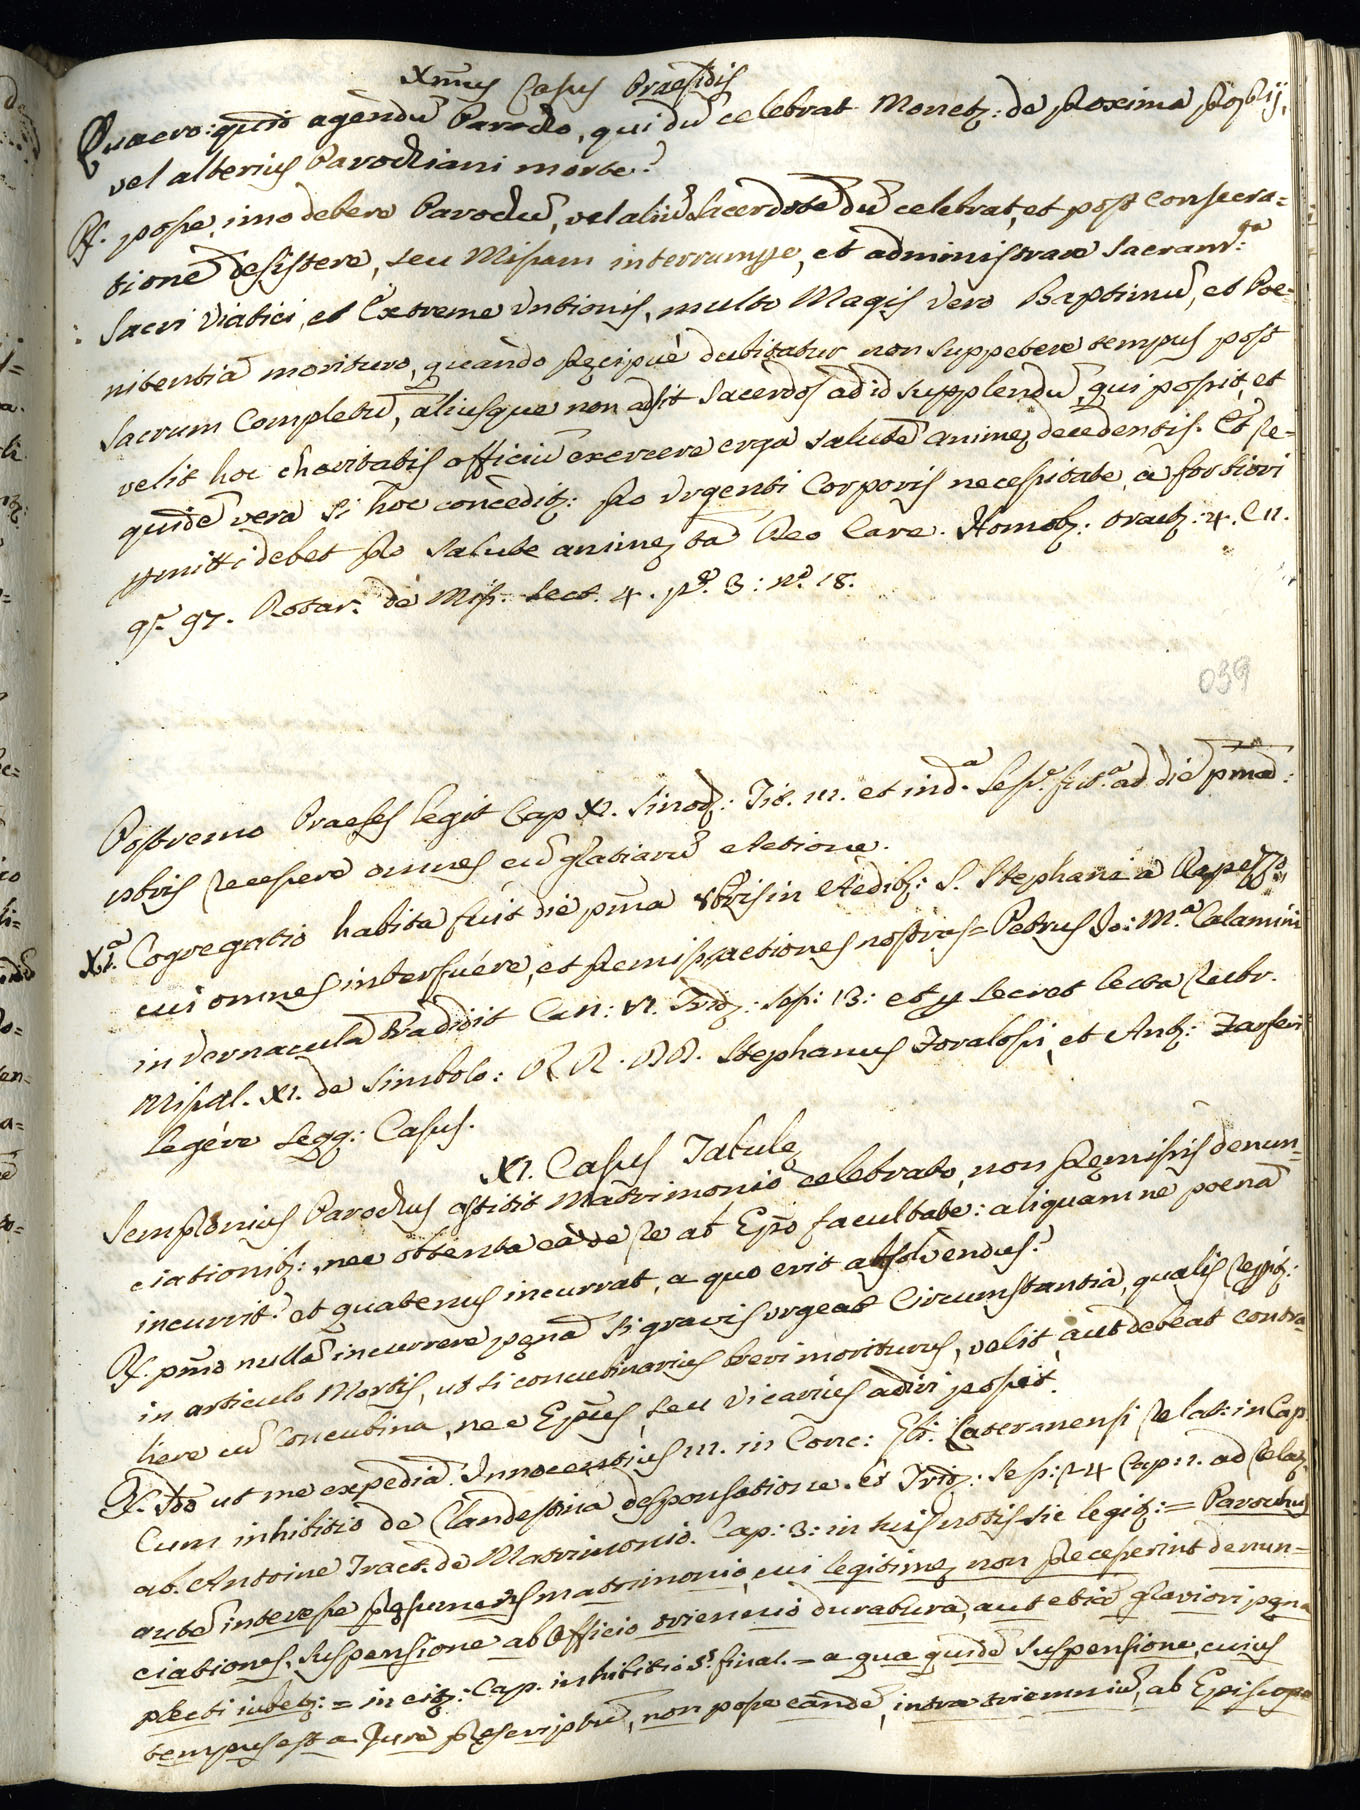 Xmus Casus Praesidis
Quaero: quid agendũ Parocho, qui dũ celebrat Monetʒ: de proxima proprij,
vel alterius Parochiani morte?
R. posse, imo debere Parochũ, vel aliũ Sacerdotẽ dũ celebrat, et post consecra=
tionẽ desistere, seu Missam interrumpere, et administrare Sacram:ta
Sacri Viatici, et Extreme Untionis, multo Magis vero Baptismũ, et Poe-
nitentiã morituro, quando precipuè dubitatur non suppetere tempus post
Sacrum Completũ, aliusque non adsit Sacerdos ad id supplendũ, qui possit, et
velit hoc charitatis officiũ exercere erga salutẽ anime decedentis. Et se=
quidẽ vera si hoc conceditʒ: pro urgenti Corporis necessitate, à fortiori
permitti debet pro salute anime ita Reo Care. Homobʒ: tractʒ: 4. C 11.
qs. 97. Rotar. de Miss. Sect. 4. ps. 3: n.o 18.
039
Postremo Praeses legit Cap XI. Sinodʒ: Tit. III. et ind.a Sess.e fut.a ad diẽ pmã:
8bris recessere omnes cũ gratiarũ actione.
XI.a Cogregatio habita fuit die pma 8bris in Aedibʒ: S. Stephani à
cui omnes interfuére, et premissis actiones nostras = Petrus Jo: M.a Calamini
in vernaculã tradidit Can: VI. Tridʒ: sess: 13: et ego Secret lecta rubr.
Missal. XI. de Simbolo: RR. DD. Stephanus et Antʒ:
legére segg: Casus.
XI. Casus Tabule
Sempronius Parochus astitit Matrimonio celebrato, non premissis denun=
ciationibʒ:, nec obtenta eà de re ab Epõ facultate: aliquamne poenã
incurrit? et quatenus incurrat, a quo erit absolvendus?
R. pmõ nullã incurrere penã si gravis urgeat Circumstantia, qualis
in articulo Mortis, ut si concubinarius brevi moriturus, velit, aut debeat contra=
here cũ Concubina, nec Epũs, seu Vicarius adiri possit.
R. 2do ut me expediã. Innocentius III. in Conc: Gli: Lateranensi relat: in Cap.
Cum inhibitio de Clandestina desponsatione. et Tridʒ: Sess: 24 Cap: 1. ad
ab. Antoine Tract. de Matrimonio. Cap: 3: in suis notis sic legitʒ: = Parochus
autẽ interesse presumens matrimonio, cui legitime non precesserint denun=
ciationes, suspensione ab officio triennio duratura, aut etiã graviori pena
plecti iubetʒ: = in citʒ: Cap. inhibitio §. final. = a qua quidẽ suspensione, cuius
tempus est a Jure prescriptũ, non posse eandẽ, intra trienniũ, ab Episcopo